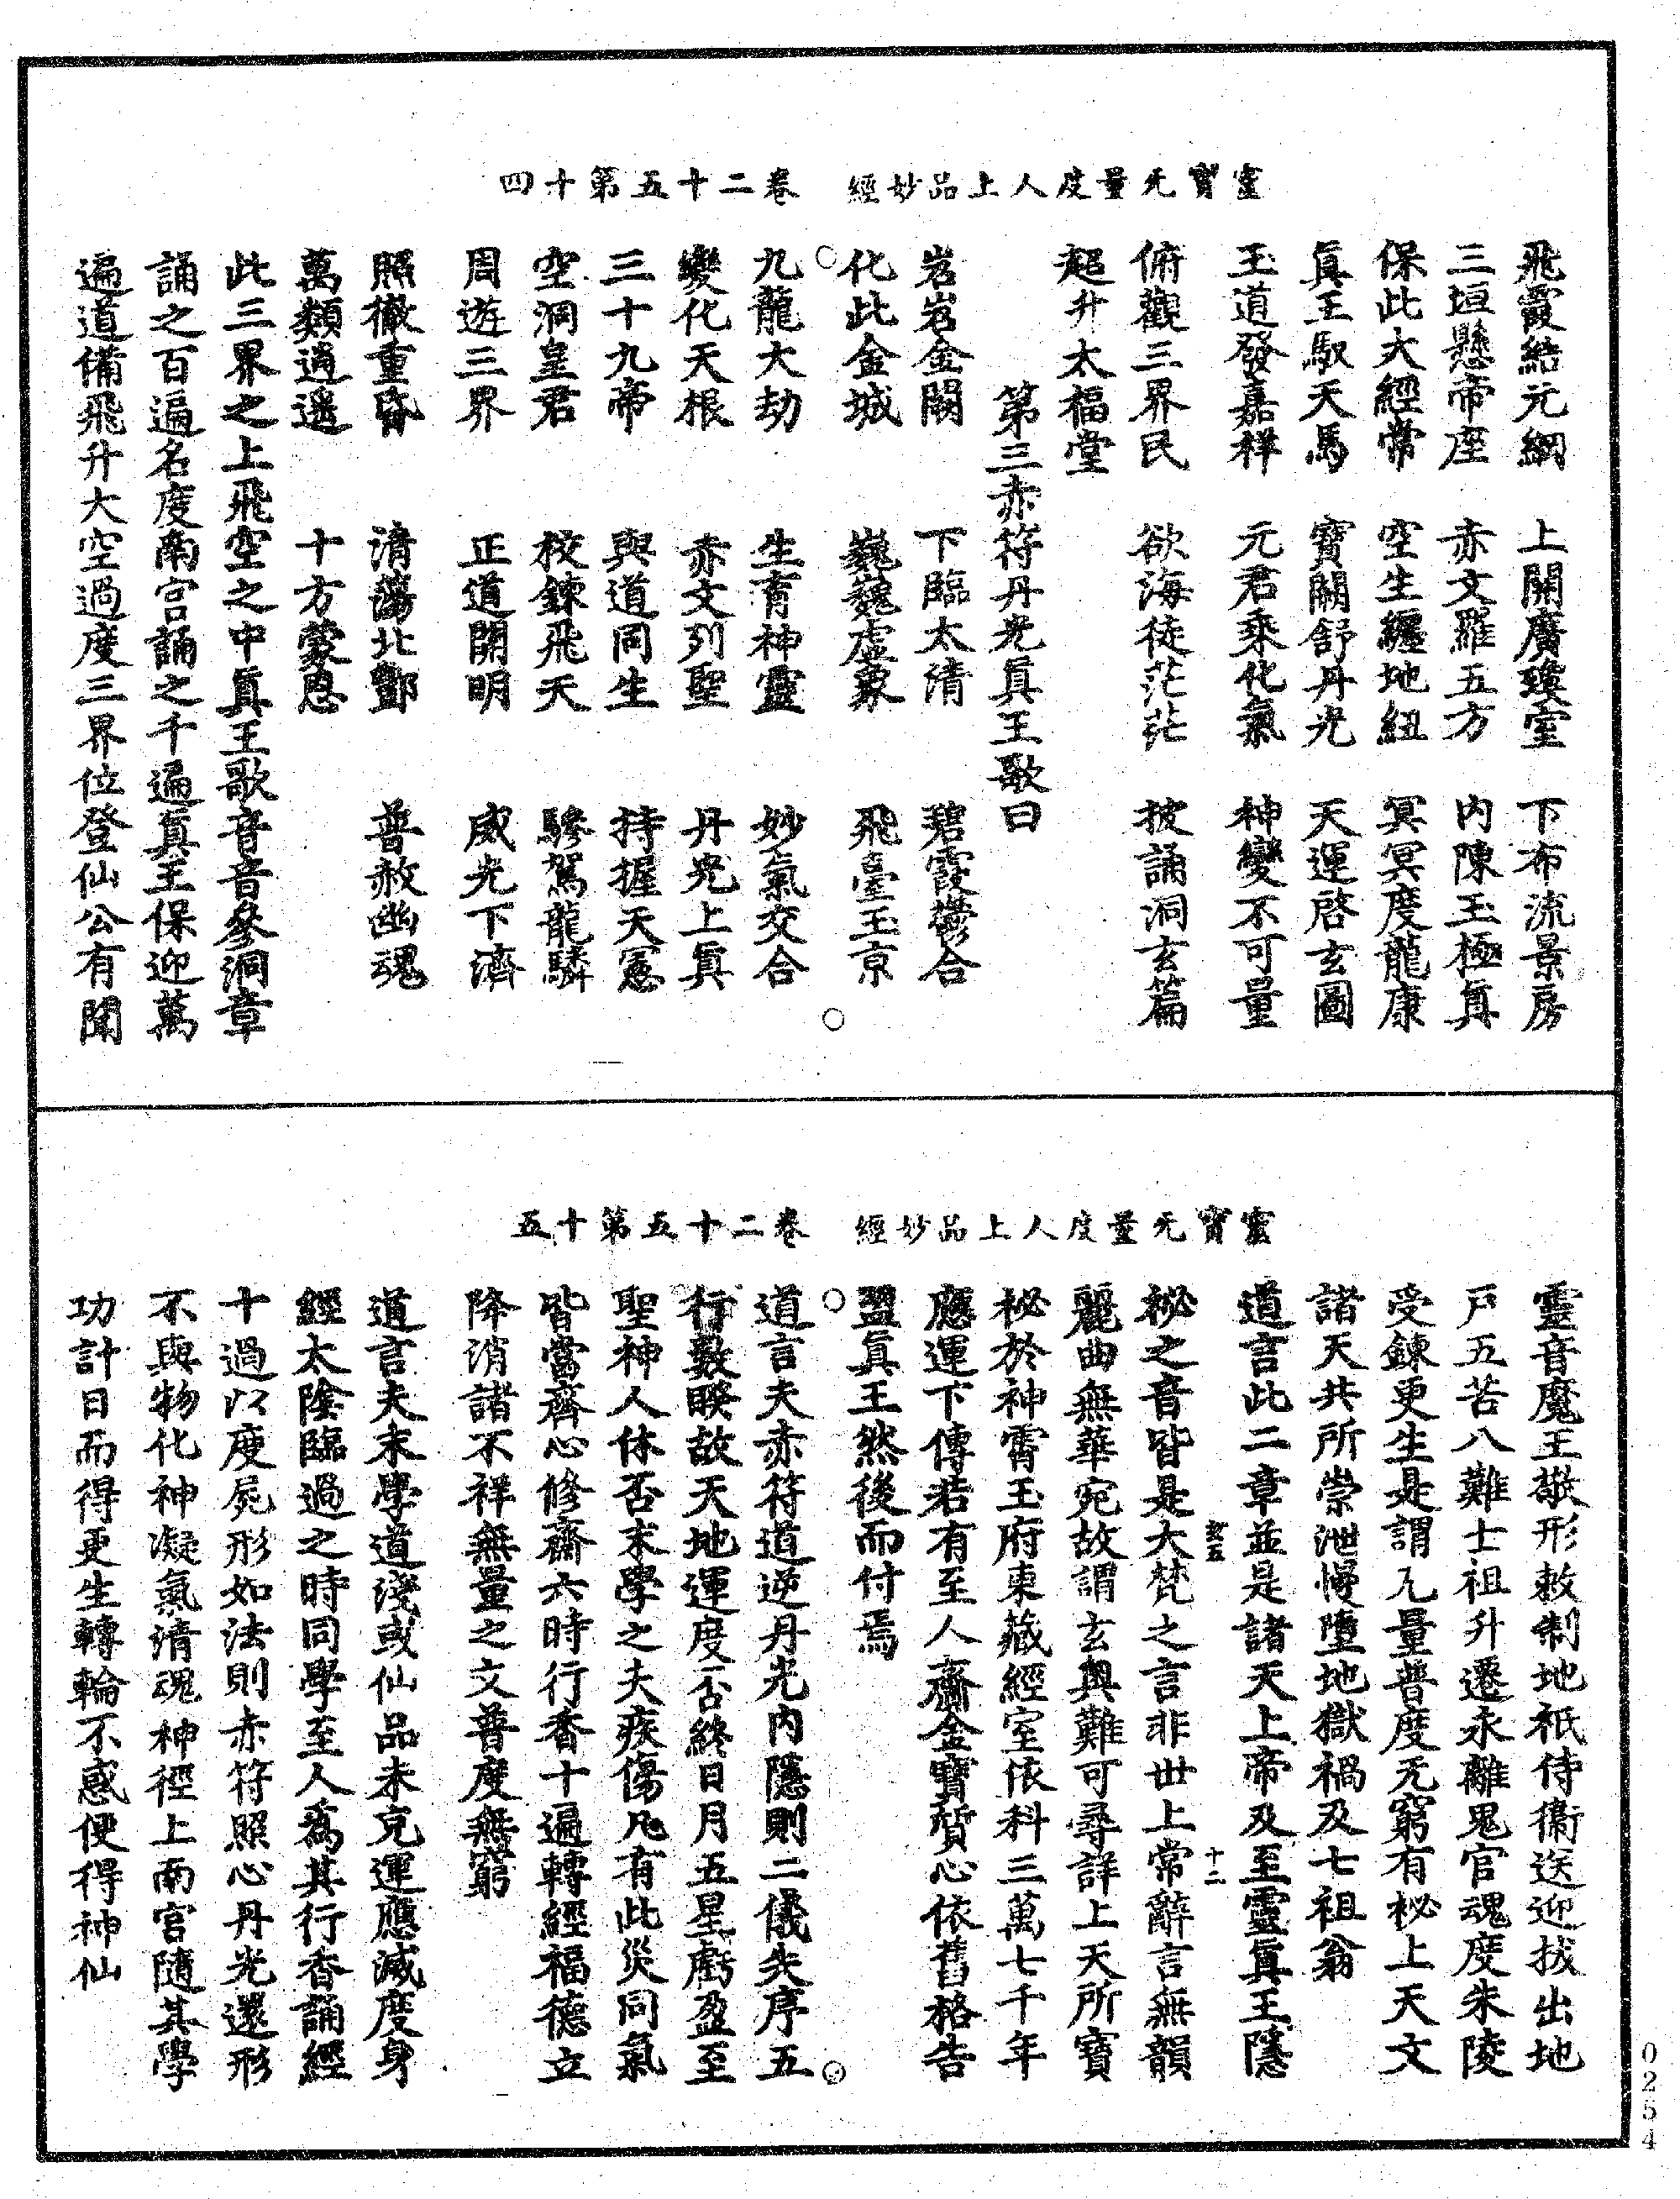 靈寶无量度人上品妙經　卷二十五第十四
飛霞結元綱　上開廣瓊室　下布流景房
三垣懸帝座　赤文羅五方　內陳玉極眞
保此大經常　空生纏地紐　冥冥度龍康
眞王馭天馬　寶闕舒丹光　天運啓玄圖
玉道發嘉祥　元君乘化氣　神變不可量
俯觀三界民　欲海徒茫茫　披誦洞玄篇
超升太福堂
第三赤符丹光眞王歌曰
岧岧金闕　下臨太清　碧霞鬱合
化此金城　巍巍虛象　飛臺玉京
九龍大劫　生育神靈　妙氣交合
變化天根　赤文列聖　丹光上眞
三十九帝　與道同生　持握天憲
空洞皇君　校錬飛天　驂駕龍驎
周遊三界　正道開明　威光下濟
照徹重昏　清蕩北酆　普赦幽魂
萬類逍遥　十方蒙恩
此三界之上飛空之中眞王歌音音參洞章
誦之百遍名度南宮誦之千遍眞王保迎萬
遍道備飛升大空過度三界位登仙公有聞
靈寶无量度人上品妙經　卷二十五第十五
靈音魔王敬形敕制地祇侍衞送迎拔出地
戸五苦八難士祖升遷永離鬼官魂度朱陵
受錬更生是謂无量普度无窮有祕上天文
諸天共所崇泄慢墮地獄禍及七祖翁
道言此二章並是諸天上帝及至靈眞王隱
祕之音皆是大梵之言非世上常辭言無韻
麗曲無華宛故謂玄奥難可尋詳上天所寶
祕於神霄玉府東藏經室依科三萬七千年
應運下傳若有至人齎金寶質心依舊格告
盟眞王然後而付焉
道言夫赤符道逆丹光内隱則二儀失序五
行數睽故天地運度否終日月五星虧盈至
聖神人休否末學之夫疾傷凡有此災同氣
皆當齊心修齋六時行香十遍轉經福德立
降消諸不祥無量之文普度無窮
道言夫末學道淺或仙品未克運應滅度身
經太陰臨過之時同學至人爲其行香誦經
十過以度屍形如法則赤符照心丹光還形
不與物化神凝氣清魂神徑上南宮隨其學
功計日而得更生轉輪不惑便得神仙
十二
0254